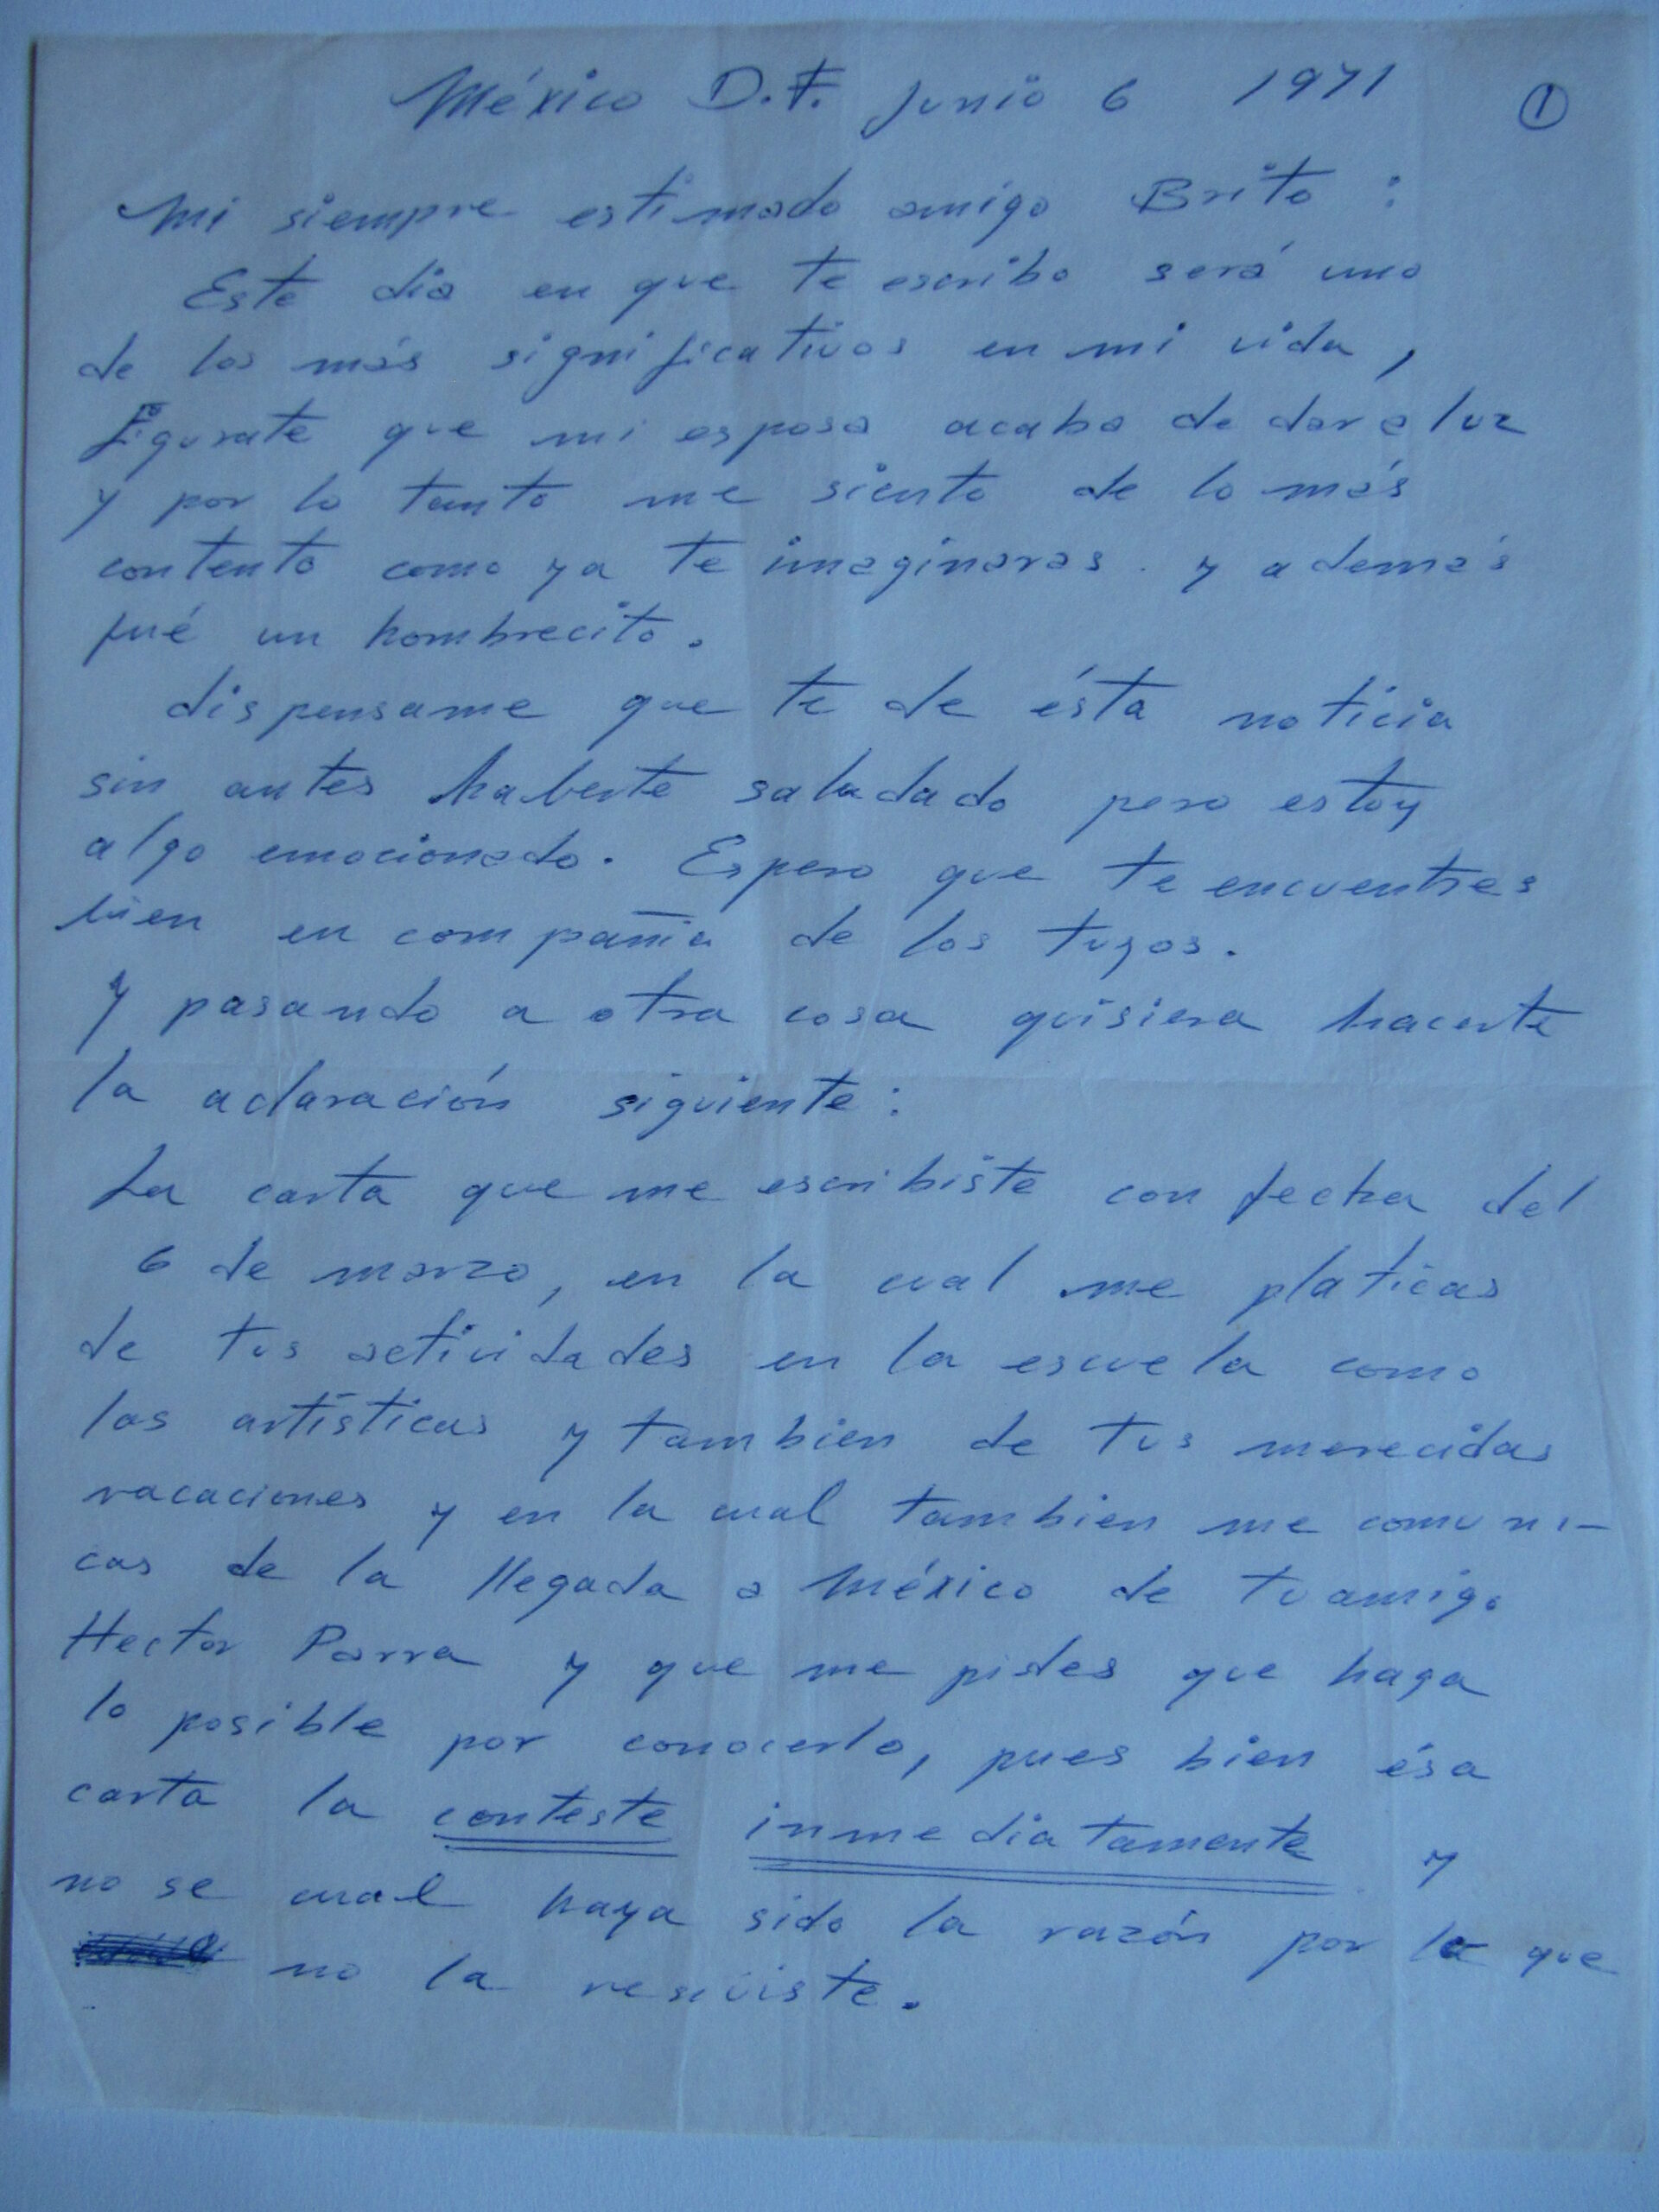 México D.F. Junio 6 1971 ①
Mi siempre estimado amigo Brito :
Este dia en que te escribo será uno
de los más significativos en mi vida ,
Figurate que mi esposa acaba de dar a luz
y por lo tanto me siento de lo más
contento como ya te imaginaras . y además
fué un hombrecito .
dispensame que te de ésta noticia
sin antes haberte saludado pero estoy
algo emocionado . Espero que te encuentres
bien en compañia de los tuyos .
Y pasando a otra cosa quisiera hacerte
la aclaración siguiente :
La carta que me escribiste con fecha del
6 de marzo , en la cual me platicas
de tus actividades en la escuela como
las artísticas y tambien de tus merecidas
vacaciones y en la cual tambien me comuni-
cas de la llegada a México de tu amigo
Hector Parra y que me pides que haga
lo posible por conocerlo , pues bien ésa
carta la conteste inmediatamente y
no se cual haya sido la razón por la que
no la resiviste .